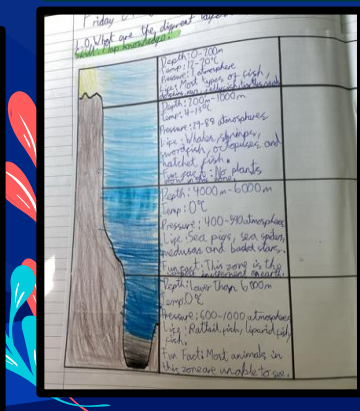 Friday
What are the different layers
Skill: Map knowledge
Depth: 0-200m
Temp: 12-20°C
Pressure: 1 atmosphere
Life: Most types of fish,
Depth: 200m-1000m
Temp: 4-13°C
Pressure: 29-89 atmospheres
Life: Whales, shrimps,
swordfish, octopuses and
hatchet fish.
Fun fact: No plants
Depth: 4000m-6000m
Temp: 0°C
Pressure: 400-590 atmosphere
Life: Sea pigs, sea spider,
medusas and basket stars.
Fun Fact: This zone is the
environment on earth.
Depth: Lower than 6000m
Temp: 0°C
Pressure: 600-1000 atmosphere
Life: Rattail fish, liparid fish,
fish.
Fun Fact: Most animals in
this zone are unable to see.